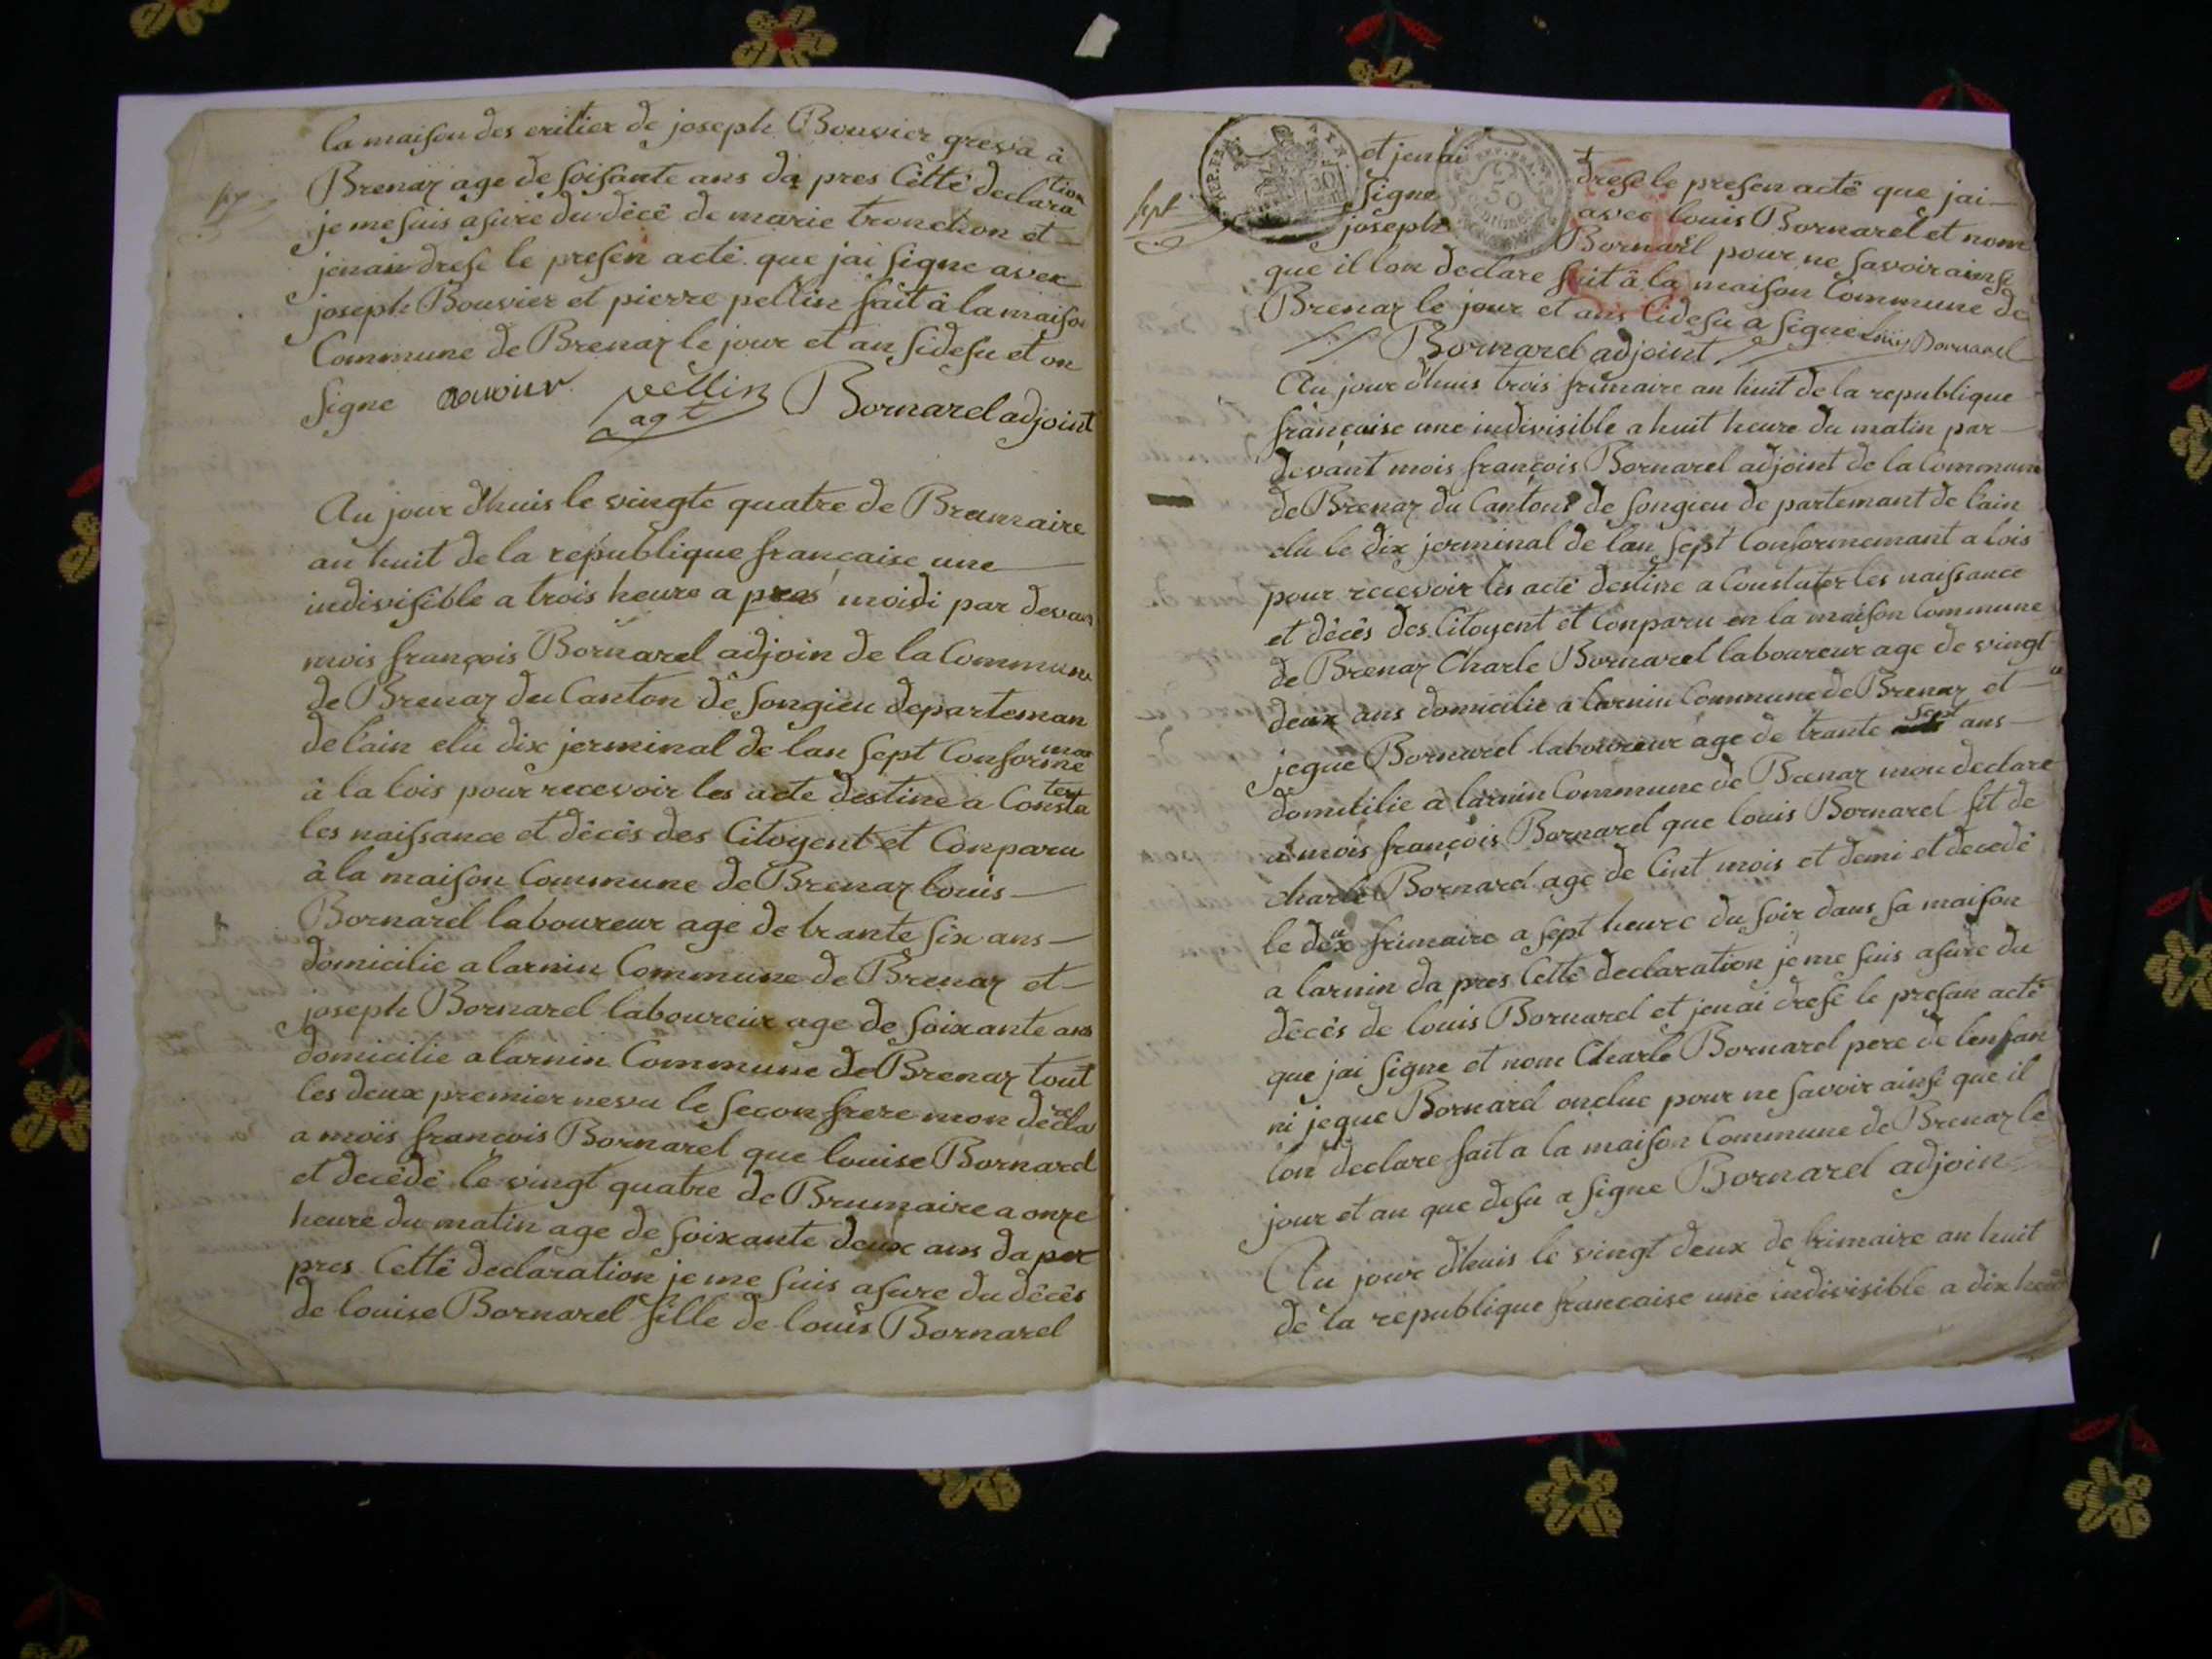 la maison des eritier de joseph Bouvier greva à
Brenaz age de soisante ans da pres Cette declara
tion
je me suis asuré du décé de marie tronchon et
jenai drese le presen acté que jai signe avex
joseph Bouvier et pierre pellin fait à la maiso
Commune de Brenaz le jour et an sidesu et on
signe pellin Bornarel adjoint
agt
Au jour dhuis le vingte quatre de Brumaire
an huit de la republique française une
indivisible a trois heure a pres moidi par devan
mois françois Bornarel adjoin de la Commune
de Brenaz du Canton de songieu departeman
de lain elu dix jerminal de lan sept Conforme
man
à la lois pour recevoir les acte destine a Consta
ter
les naissance et décés des Citoyent et Conparu
à la maison Commune de Brenaz louis
Bornarel laboureur age de trante six ans
domicilie a larnin Commune de Brenaz et
joseph Bornarel laboureur age de soixante ans
domicilie a larnin Commune de Brenaz tout
les deux premier nevu le secon frere mon decla
re
a mois françois Bornarel que louise Bornarel
et decédé le vingt quatre de Brumaire a onze
heure du matin age de soixante deux ans da per
pres Cette declaration je me suis asure du décés
de louise Bornarel fille de louis Bornarel
sept
REP. FRA.
50
centimes
et jenai drese le presen acté que jai
signe avec louis Bornarel et nom
joseph Bornarel pour ne savoir ainse
que il lon declare fait à la maison Commune de
Brenaz le jour et ans Cidesu a signe Louis Bornarel
Bornarel adjoint
Au jour dhuis trois frimaire an huit de la republique
françaisc une indivisible a huit heure du matin par
devant mois françois Bornarel adjoint de la Commune
de Brenaz du Canton de songieu de partemant de lain
elu le dix jerminal de lan sept Conformemant a lois
pour recevoir les acté destine a Constater les naissance
et décés des Citoyent et Conparu en la maison Commune
de Brenaz Charle Bornarel laboureur age de vingt
deux ans domicilie a larnin Commune de Brenaz et
jeque Bornarel laboureur age de trante sept ans
domicilie à larnin Commune de Brenaz mon declare
a mois françois Bornarel que louis Bornarel fit de
charle Bornarel age de Cint mois et demi et decedé
le deux frimaire a sept heure du soir dans sa maison
a larnin da pres Cette declaration je me suis asuré du
décés de louis Bornarel et jenai dresé le presan acté
que jai signe et nom Charle Bornarel pere de lenfan
ni jeque Bornarel oncluc pour ne savoir ainse que il
lon declare fait a la maison Commune de Brenaz le
jour et an que desu a signe Bornarel adjoin
Au jour dhuis le vingt deux de frimaire an huit
de la republique francaise une indivisible a dix heure